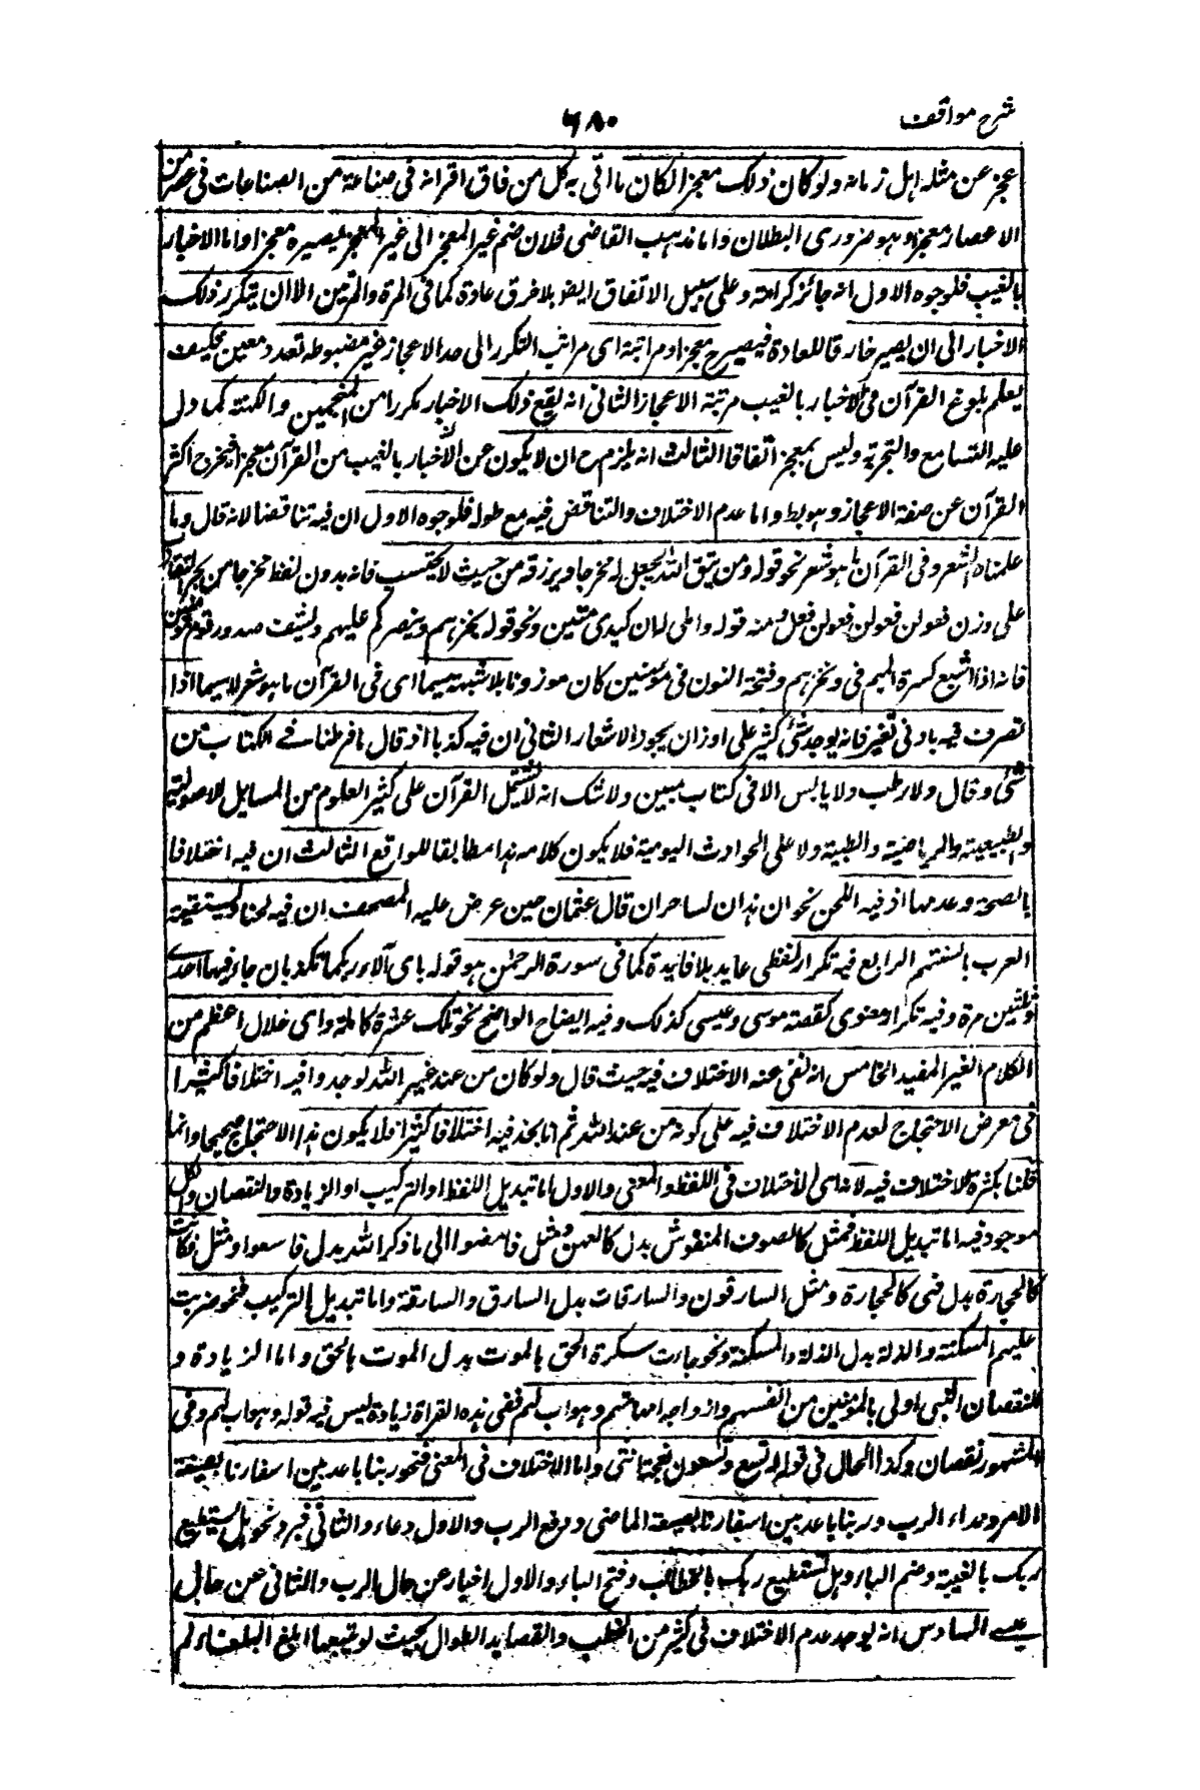 شرح مواقف
٦٨٠
عجز عن مثله اهل زمانه ولو كان ذلك معجزا لكان ما اتى به كل من فاق اقرانه فى صناعة من الصناعات فى عصر من
الاعصار معجزا وهو ضرورى البطلان واما مذهب القاضى فلان ضم غير المعجز الى غير المعجز لا يصيره معجزا واما الاخبار
بالغيب فلوجوه الاول انه جائز كرامة وعلى سبيل الاتفاق ايضو بلا خرق عادة كما فى المرة والمرتين الا ان يتكرر ذلك
الاخبار الى ان يصير خارقا للعادة فيصير ح معجزا ومراتبه اى مراتب التكرر الى حد الاعجاز غير مضبوطه بعدد معين فكيف
يعلم بلوغ القرآن فى الاخبار بالغيب مرتبة الاعجاز الثانى انه يقع ذلك الاخبار مكررا من المنجمين والكهنة كما دل
عليه التسامع والتجربة وليس بمعجز اتفاقا الثالث انه يلزم ح ان لا يكون عن الاخبار بالغيب من القرآن معجزا فيخرج اكثر
القرآن عن صفة الاعجاز وهو بط واما عدم الاختلاف والتناقض فيه مع طوله فلوجوه الاول ان فيه تناقضا لانه قال وما
علمناه الشعر وفى القرآن ما هو شعر نحو قوله ومن يتق الله يجعل له مخرجا ويرزقه من حيث لا يحتسب فانه بدون لفظ مخرجا من بحر المتقارب
على وزن فعولن فعولن فعولن فعل ومنه قوله واملى لهم ان كيدى متين ونحو قوله يخزهم وينصركم عليهم ويشف صدور قوم مؤمنين
فانه اذا اشبع كسرة الميم فى ويخزهم وفتحة النون فى مؤمنين كان موزونا بلا شبهة سيما اى فى القرآن ما هو شعر لا سيما اذا
تصرف فيه بادنى تغير فانه يوجد شئ كثير على اوزان بحور الاشعار الثانى ان فيه كذبا اذ قال ما فرطنا فى الكتاب من
شئ وقال ولا رطب ولا يابس الا فى كتاب مبين ولا شك انه لا يشتمل القرآن على كثير العلوم من المسايل الاصولية
والطبيعية والرياضية والطبية ولا على الحوادث اليومية فلا يكون كلامه هذا مطابقا للواقع الثالث ان فيه اختلافا
بالصحة وعدمها اذ فيه اللحن نحو ان هذان لساحران قال عثمان حين عرض عليه المصحف ان فيه لحنا وستقيمه
العرب بالسنتهم الرابع فيه تكرار لفظى عايد بلا فايدة كما فى سورة الرحمن هو قوله باى آلاء ربكما تكذبان جاء فيها احدى
وثلثين مرة وفيه تكرار معنوى كقصة موسى وعيسى كذلك وفيه ايضاح الواضح نحو تلك عشرة كاملة واى خلال اعظم من
الكلام الغير المفيد الخامس انه نفى عنه الاختلاف فيه حيث قال ولو كان من عند غير الله لوجدوا فيه اختلافا كثيرا
فى معرض الاحتجاج لعدم الاختلاف فيه على كونه من عند الله ثم انا نجد فيه اختلافا كثيرا فلا يكون هذا الاحتجاج صحيحا وانما
قلنا بكثرة الاختلاف فيه لانه اى الاختلاف فى اللفظ والمعنى والاول اما تبديل اللفظ او التركيب او الزيادة والنقصان والكل
موجود فيه اما تبديل اللفظ فمثل كالصوف المنفوش بدل كالعهن ومثل فامضوا الى ما ذكر الله بدل فاسعوا ومثل فكانت
كالحجارة بدل فهى كالحجارة ومثل السارقون والسارقات بدل السارق والسارقة واما تبديل التركيب فنحو ضربت
عليهم المسكنة والذلة بدل الذلة والمسكنة ونحو جاءت سكرة الحق بالموت بدل الموت بالحق واما الزيادة و
النقصان النبى اولى بالمؤمنين من انفسهم وازواجه امهاتهم وهو اب لهم ففى هذه القراة زيادة ليس فيه قوله وهو اب لهم وفى
المشهور نقصان وكذا الحال فى قوله له تسع وتسعون نعجة انثى واما الاختلاف فى المعنى فنحو ربنا باعد بين اسفارنا بصيغة
الامر ونداء الرب وربنا باعد بين اسفارنا بصيغة الماضى ورفع الرب والاول دعاء والثانى خبر ونحو هل يستطيع
ربك بالغيبة وضم الباء وهل تستطيع ربك بالخطاب وفتح الباء والاول اخبار عن حال الرب والثانى عن حال
عيسى السادس انه يوجد عدم الاختلاف فى كثير من الخطب والقصايد الطوال بحيث لو تتبعها ابلغ البلغاء لم